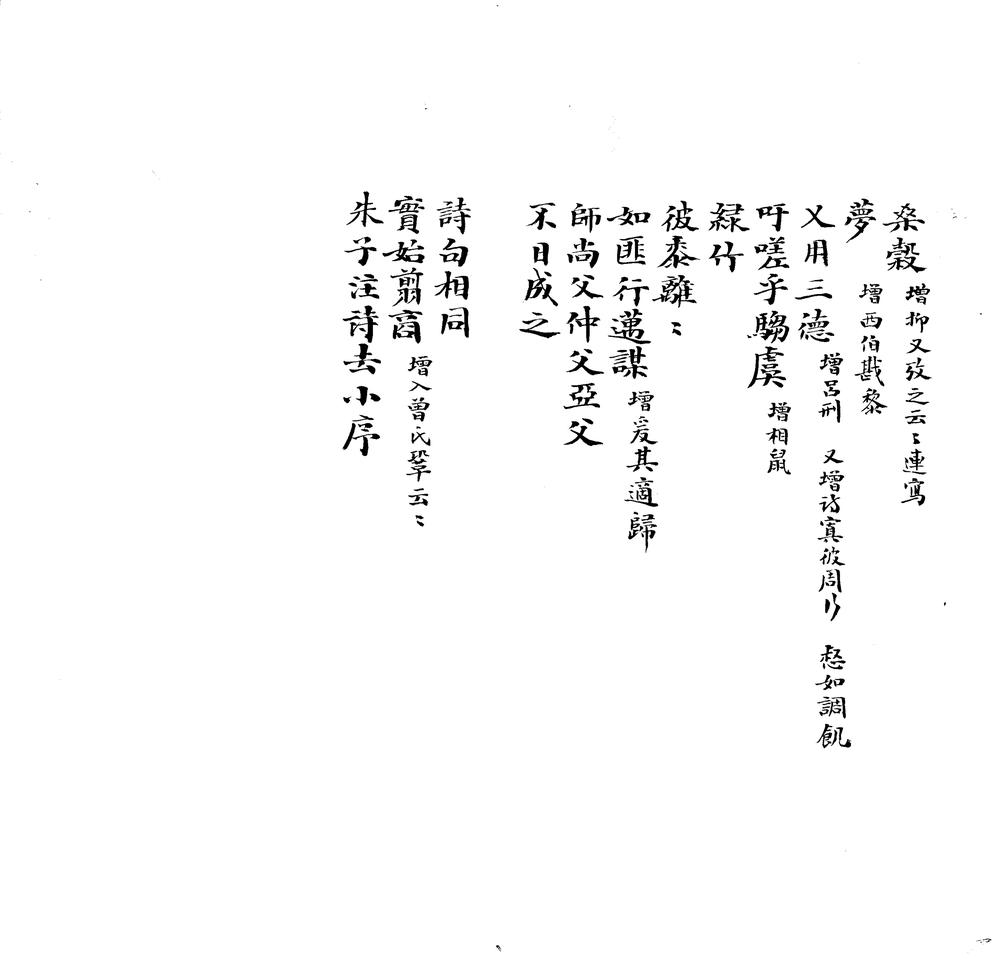 桑榖 增抑又攷之云〻連寫
夢 增西伯戡黎
乂用三德 增呂刑 又增詩寘彼周行 惄如調飢
吁嗟乎騶虞 增相鼠
緑竹
彼黍離〻
如匪行邁謀 增爰其適歸
師尚父仲父亞父
不日成之
詩句相同
實始翦商 增入曾氏鞏云〻
朱子注詩去小序